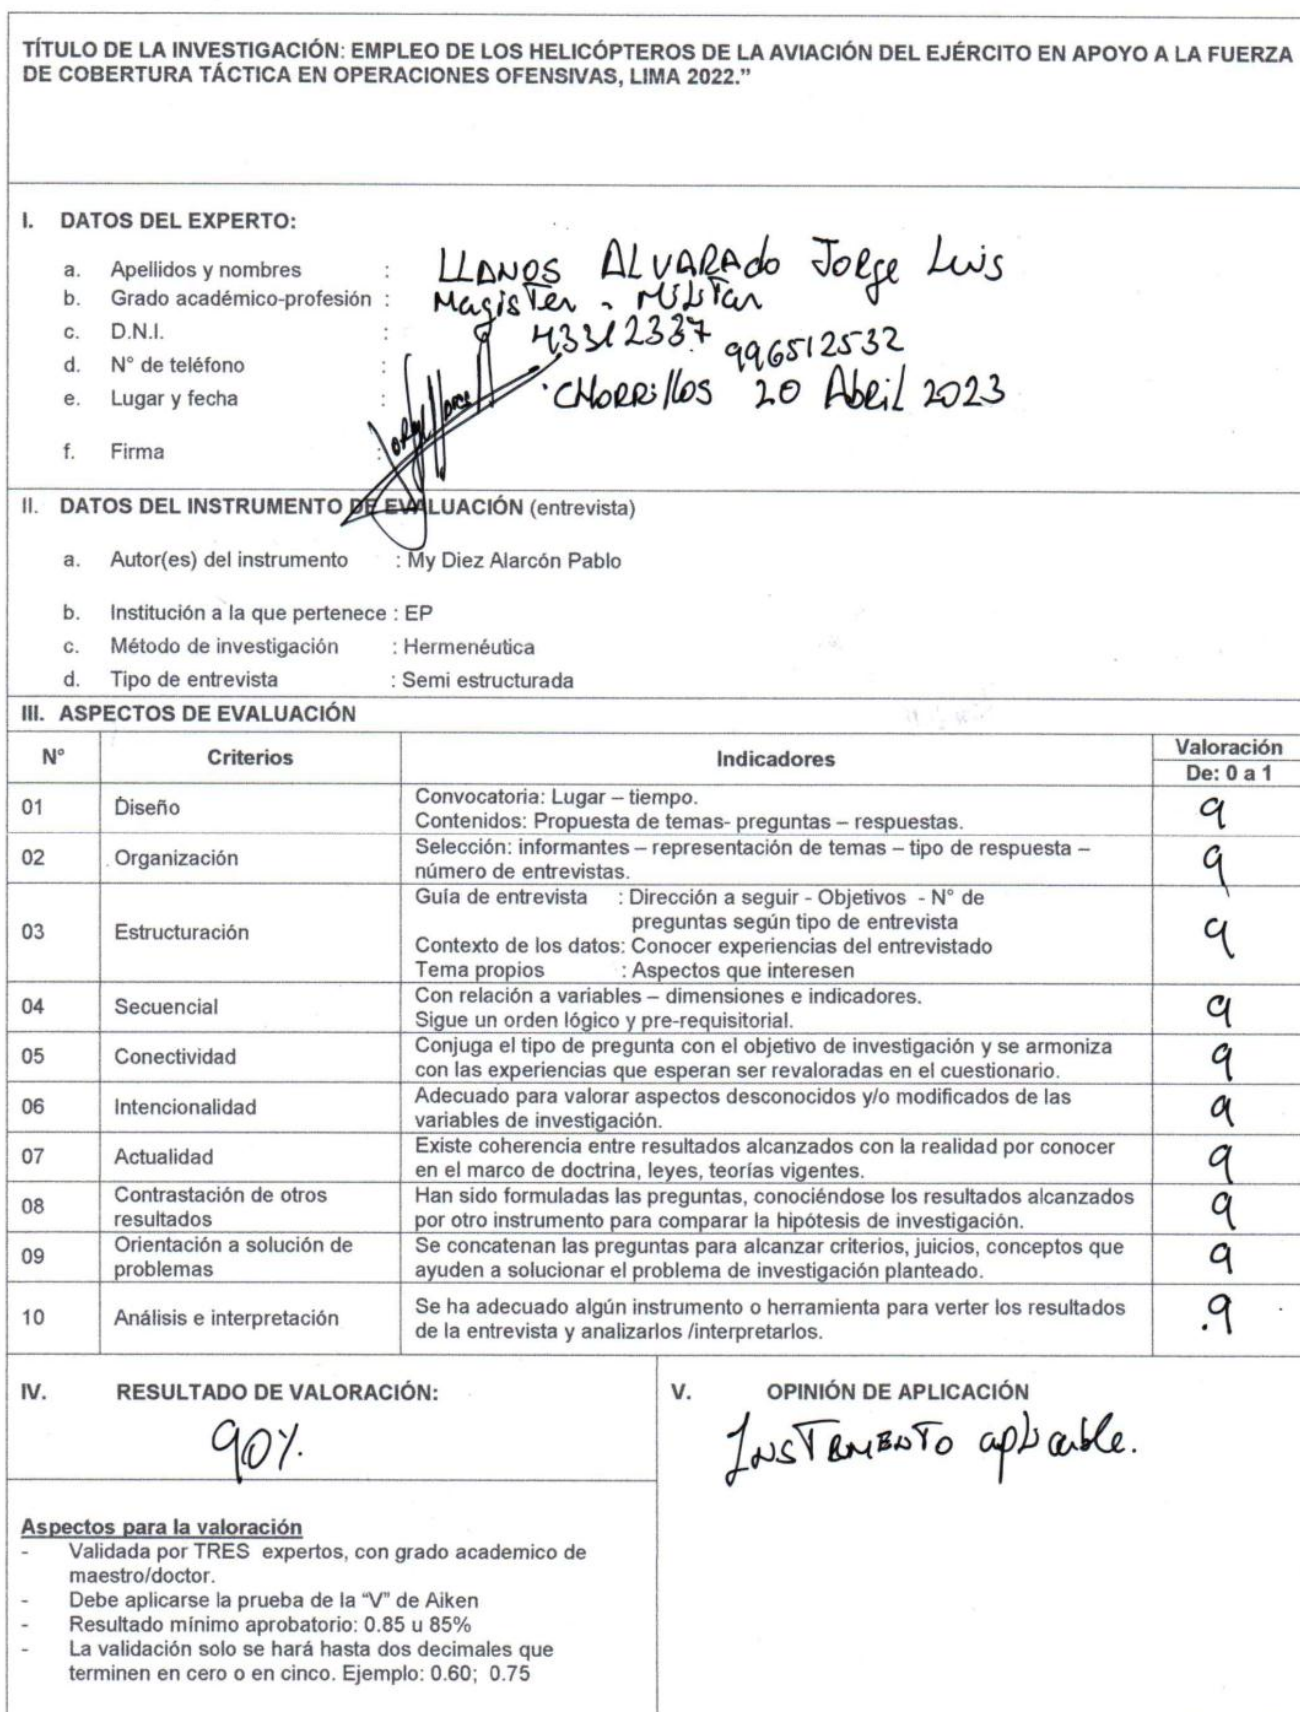 TÍTULO DE LA INVESTIGACIÓN: EMPLEO DE LOS HELICÓPTEROS DE LA AVIACIÓN DEL EJÉRCITO EN APOYO A LA FUERZA
DE COBERTURA TÁCTICA EN OPERACIONES OFENSIVAS, LIMA 2022.”
I. DATOS DEL EXPERTO:
a. Apellidos y nombres : LLANOS ALVARADO Jorge Luis
b. Grado académico-profesión : Magister - Militar
c. D.N.I. : 43312337
d. N° de teléfono : 996512532
e. Lugar y fecha : CHORRillos 20 Abril 2023
f. Firma :
II. DATOS DEL INSTRUMENTO DE EVALUACIÓN (entrevista)
a. Autor(es) del instrumento : My Diez Alarcón Pablo
b. Institución a la que pertenece : EP
c. Método de investigación : Hermenéutica
d. Tipo de entrevista : Semi estructurada
III. ASPECTOS DE EVALUACIÓN
N° Criterios Indicadores Valoración
De: 0 a 1
01 Diseño Convocatoria: Lugar – tiempo. 9
Contenidos: Propuesta de temas- preguntas – respuestas.
02 Organización Selección: informantes – representación de temas – tipo de respuesta – 9
número de entrevistas.
03 Estructuración Guía de entrevista : Dirección a seguir - Objetivos - N° de 9
preguntas según tipo de entrevista
Contexto de los datos: Conocer experiencias del entrevistado
Tema propios : Aspectos que interesen
04 Secuencial Con relación a variables – dimensiones e indicadores. 9
Sigue un orden lógico y pre-requisitorial.
05 Conectividad Conjuga el tipo de pregunta con el objetivo de investigación y se armoniza 9
con las experiencias que esperan ser revaloradas en el cuestionario.
06 Intencionalidad Adecuado para valorar aspectos desconocidos y/o modificados de las 9
variables de investigación.
07 Actualidad Existe coherencia entre resultados alcanzados con la realidad por conocer 9
en el marco de doctrina, leyes, teorías vigentes.
08 Contrastación de otros Han sido formuladas las preguntas, conociéndose los resultados alcanzados 9
resultados por otro instrumento para comparar la hipótesis de investigación.
09 Orientación a solución de Se concatenan las preguntas para alcanzar criterios, juicios, conceptos que 9
problemas ayuden a solucionar el problema de investigación planteado.
10 Análisis e interpretación Se ha adecuado algún instrumento o herramienta para verter los resultados .9
de la entrevista y analizarlos /interpretarlos.
IV. RESULTADO DE VALORACIÓN:
90%.
Aspectos para la valoración
- Validada por TRES expertos, con grado academico de
maestro/doctor.
- Debe aplicarse la prueba de la “V” de Aiken
- Resultado mínimo aprobatorio: 0.85 u 85%
- La validación solo se hará hasta dos decimales que
terminen en cero o en cinco. Ejemplo: 0.60; 0.75
V. OPINIÓN DE APLICACIÓN
aplicable.